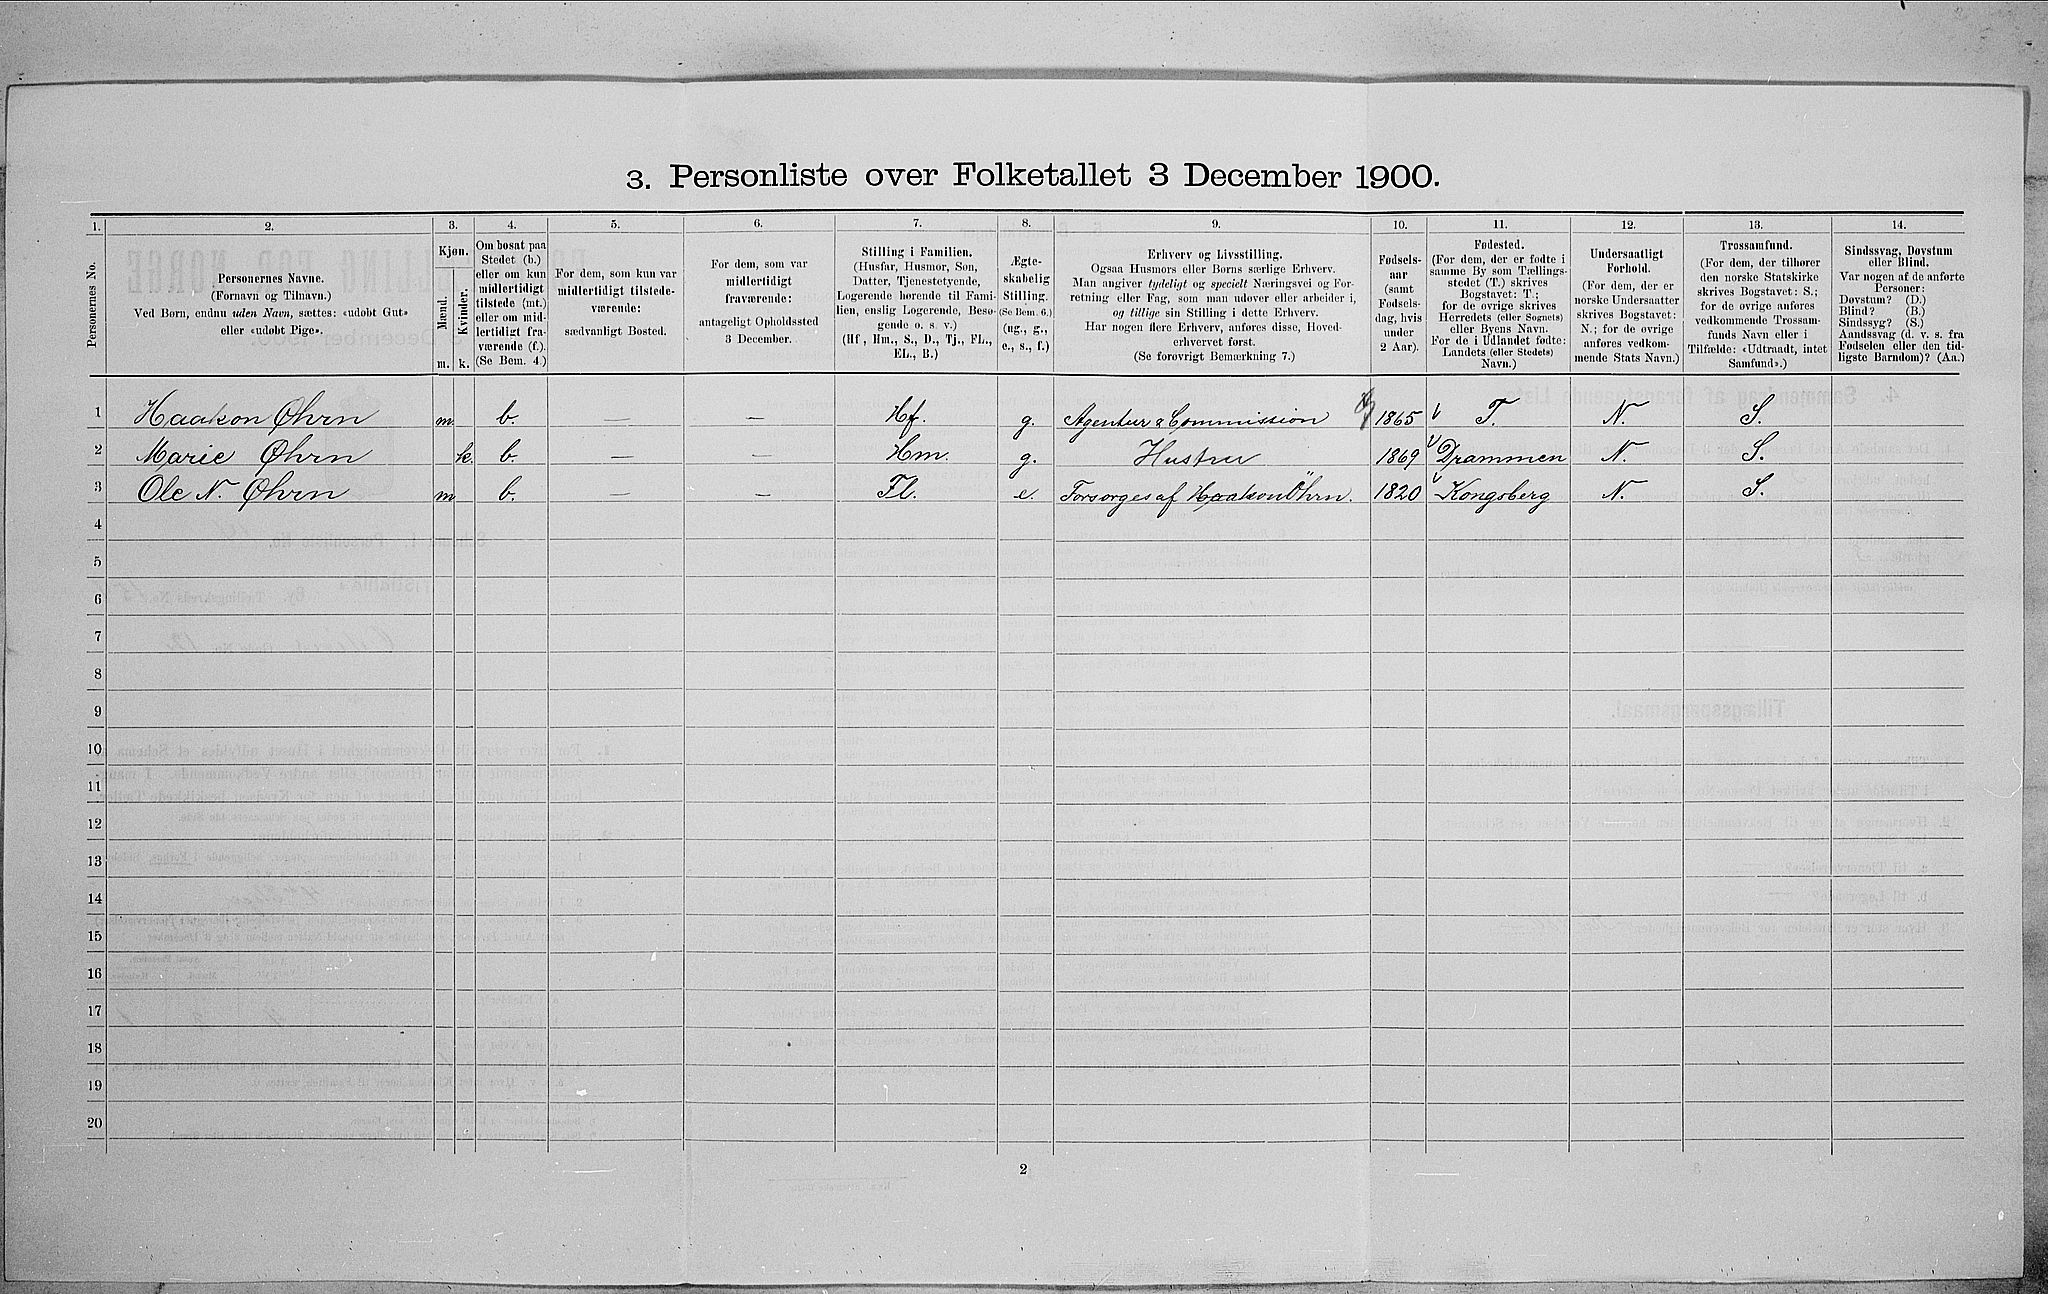 3. Personliste over Folketallet 3 December 1900.
1. 2. 3. 4. 5. 6. 7. 8. 9. 10. 11. 12. 13. 14.
Personernes No.
Personernes Navne.
(Fornavn og Tilnavn.)
Ved Børn, endnu uden Navn, sættes: «udøbt Gut»
eller «udøbt Pige».
Kjøn.
Mænd.
Kvinder.
m. k.
Om bosat paa
Stedet (b.)
eller om kun
midlertidigt
tilstede (mt.)
eller om mid-
lertidigt fra-
værende (f.)
(Se Bem. 4.)
For dem, som kun var
midlertidigt tilstede-
værende:
sædvanligt Bosted.
For dem, som var
midlertidigt
fraværende:
antageligt Opholdssted
3 December.
Stilling i Familien.
(Husfar, Husmor, Søn,
Datter, Tjenestetyende,
Logerende hørende til Fami-
lien, enslig Logerende, Besø-
gende o. s. v.)
(Hf, Hm., S., D., Tj., FL.,
EL., B.)
Ægte-
skabelig
Stilling.
(Se Bem. 6.)
(ug., g.,
e., s., f.)
Erhverv og Livsstilling.
Ogsaa Husmors eller Børns særlige Erhverv.
Man angiver tydeligt og specielt Næringsvei og For-
retning eller Fag, som man udøver eller arbeider i,
og tillige sin Stilling i dette Erhverv.
Har nogen flere Erhverv, anføres disse, Hoved-
erhvervet først.
(Se forøvrigt Bemærkning 7.)
Fødsels-
aar
(samt
Fødsels-
dag, hvis
under
2 Aar).
Fødested.
(For dem, der er fødte i
samme By som Tællings-
stedet (T.) skrives
Bogstavet: T.;
for de øvrige skrives
Herredets (eller Sognets)
eller Byens Navn.
For de i Udlandet fødte:
Landets (eller Stedets)
Navn.)
Undersaatligt
Forhold.
(For dem, der er
norske Undersaatter
skrives Bogstavet:
N.; for de øvrige
anføres vedkom-
mende Stats Navn.)
Trossamfund.
(For dem, der tilhører
den norske Statskirke
skrives Bogstavet: S.;
for de øvrige anføres
vedkommende Trossam-
funds Navn eller i
Tilfælde: «Udtraadt, intet
Samfund».)
Sindssvag, Døvstum
eller Blind.
Var nogen af de anførte
Personer:
Døvstum? (D.)
Blind? (B.)
Sindssyg? (S.)
Aandssvag (d. v. s. fra
Fødselen eller den tid-
ligste Barndom)? (Aa.)
1 Haakon Øhrn m. b. — — Hf. g. Agentur & Commission 1865 T. N. S.
2 Marie Øhrn k. b. — — Hm. g. Hustru 1869 Drammen N. S.
3 Ole N. Øhrn m b. — — Fl. e. Forsørges af Haakon Öhrn. 1820 Kongsberg N. S.
4
5
6
7
8
9
10
11
12
13
14
15
16
17
18
19
20
2